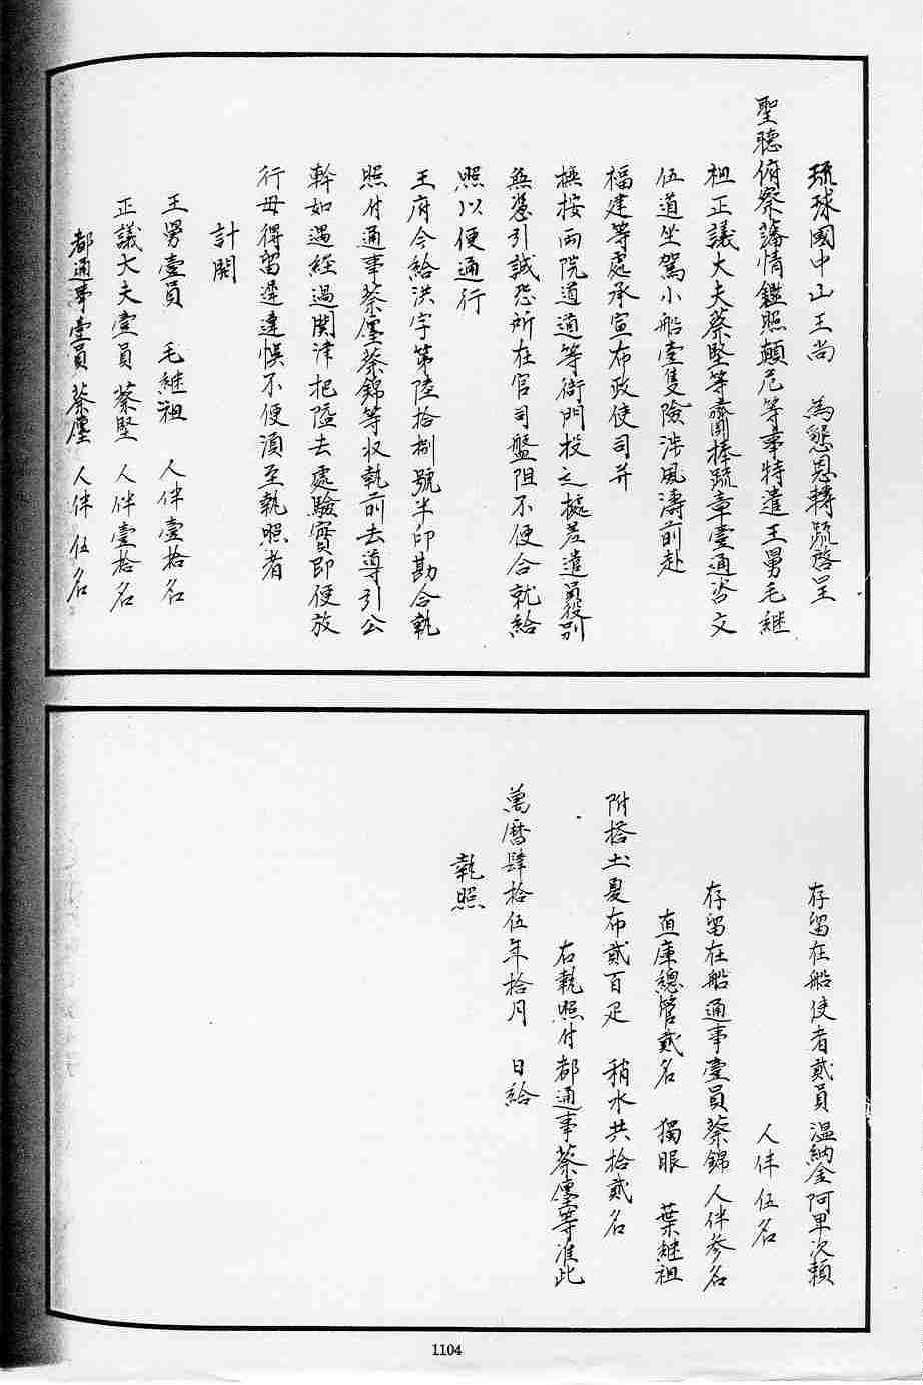 琉球國中山王尚　為懇恩轉疏啓呈
聖聽俯察藩情鑑照顛危等事特遣王舅毛継
祖正議大夫蔡堅等齎捧疏章壹通咨文
伍道坐駕小船壹隻險涉風濤前赴
福建等處承宣布政使司并
撫按両院道道等衙門投之據差遣員役別
無憑引誠恐所在官司盤阻不便合就給
照以便通行
王府今給洪字第陸拾捌號半印勘合執
照付通事蔡廛蔡錦等収執前去導引公
幹如遇經過関津把隘去處驗實即便放
行毋得留遅違悞不便湏至執照者
計開
王舅壹員　毛継祖　人伴壹拾名
正議大夫壹員　蔡堅　人伴壹拾名
都通事壹員　蔡廛　人伴伍名
存留在船使者貳員　温納金　阿里次頼
人伴伍名
存留在船通事壹員蔡錦　人伴参名
直庫總管貳名　獨眼　葉継祖
附搭土夏布貳百疋　稍水共拾貳名
右執照付都通事蔡廛等准此
萬暦肆拾伍年拾月　日給
執照
1104